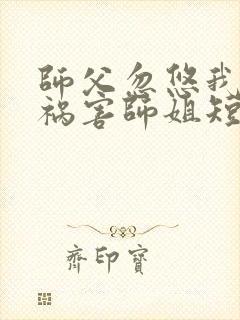 師父忽悠我
祸害師姐短
齊印寶